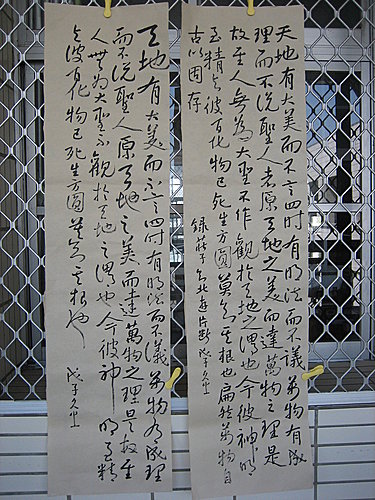 天地有大美而不言四時有明法而不議萬物有成
理而不說聖人者原天地之美而達萬物之理是
故至人無為大聖不作觀於天地之謂也今彼神明
至精與彼百化物已死生方圓莫知其根也扁然萬物自
古以固存
錄莊子知北遊片斷 戊子
天地有大美而不言四時有明法而不議萬物有成理
而不說聖人原天地之美而達萬物之理是故至
人無為大聖不觀於天地之謂也今彼神明至精
與彼百化物已死生方圓莫知其根也 戊子